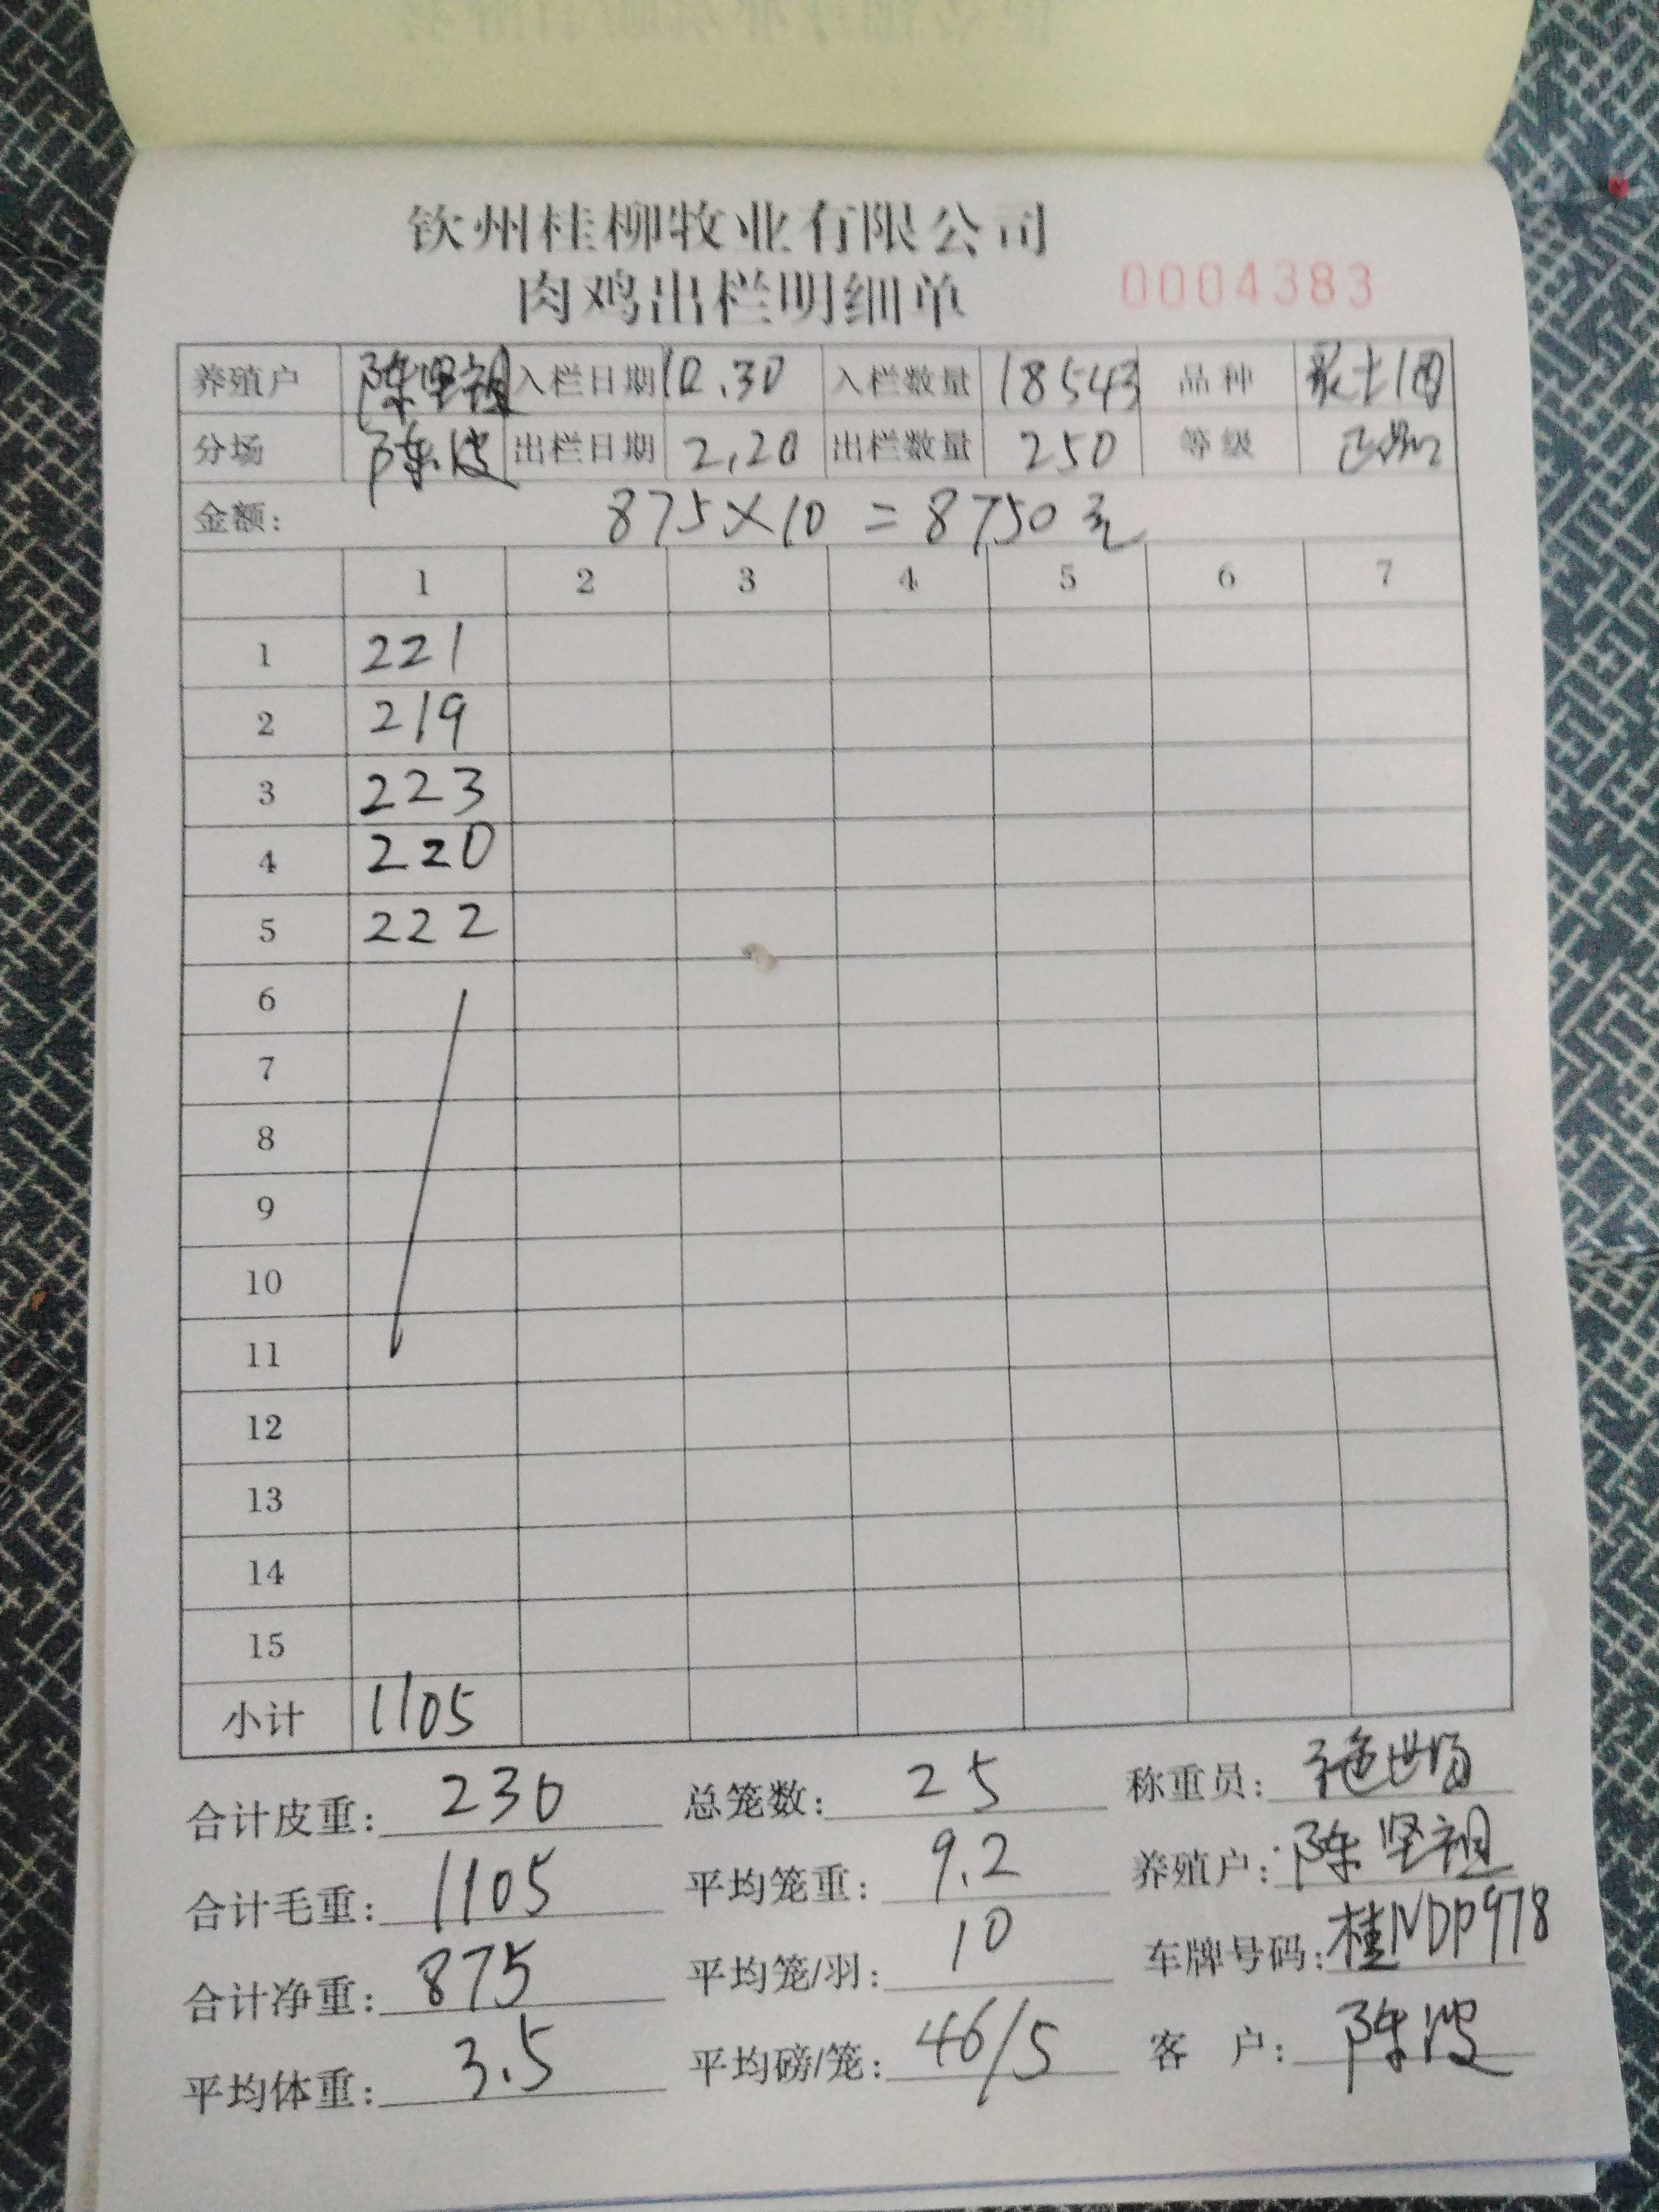 钦州桂柳牧业有限公司
肉鸡出栏明细单 0004383
养殖户 陈坚祖 入栏日期 10.30 入栏数量 18543 品种
分场 陈波 出栏日期 2.20 出栏数量 250 等级
金额: 875×10=8750元
1 2 3 4 5 6 7
1 221
2 219
3 223
4 220
5 222
6
7
8
9
10
11
12
13
14
15
小计 1105
合计皮重: 230 总笼数: 25 称重员:
合计毛重: 1105 平均笼重: 9.2 养殖户: 陈坚祖
合计净重: 875 平均笼/羽: 10 车牌号码: 桂NDP978
平均体重: 3.5 平均磅/笼: 46/5 客 户: 陈波